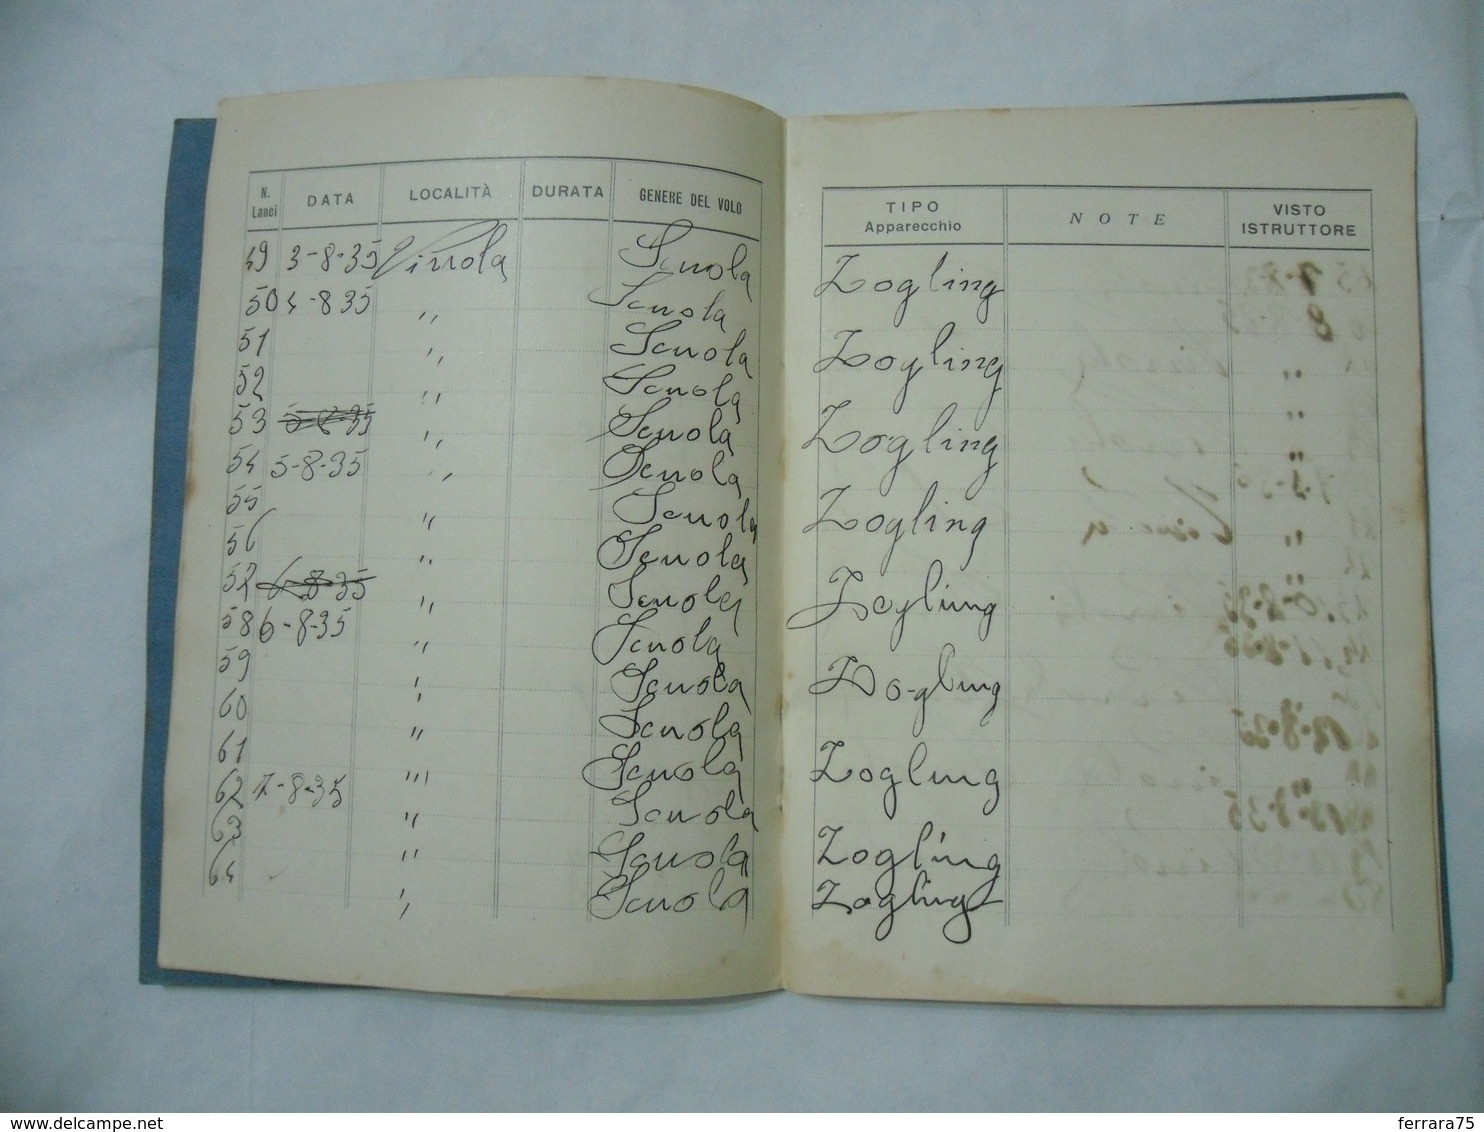 N. Lanci DATA LOCALITÀ DURATA GENERE DEL VOLO
49 3-8-35 Scuola
50 4-8 35 " Scuola
51 " Scuola
52 " Scuola
53 5-8-35 " Scuola
54 5-8-35 " Scuola
55 " Scuola
56 " Scuola
57 6-8-35 " Scuola
58 6-8-35 " Scuola
59 " Scuola
60 " Scuola
61 " Scuola
62 7-8-35 " Scuola
63 " Scuola
64 " Scuola
TIPO Apparecchio NOTE VISTO ISTRUTTORE
Zogling
Zogling
Zogling
Zogling
Zogling
Zogling
Zogling
Zogling
Zogling
delcampe.net
ferrara75